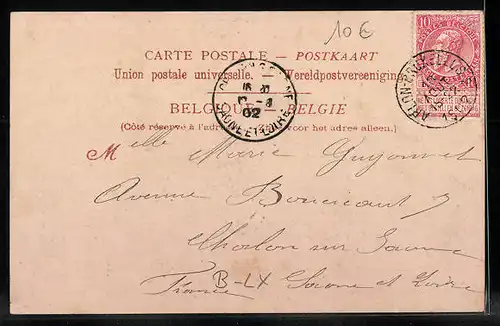 10 €
10
CARTE POSTALE — POSTKAART
Union postale universelle. — Wereldpostvereeniging
BELGIQUE — BELGIE
(Côté réservé à l'adresse voor het adres alleen.)
SAONE-ET-LOIRE
02
ARLON-BRUXELLES
Melle Marie Guyonnet
Avenue Boucicaut 7
Chalon sur Saone
France B-LX Saone et Loire